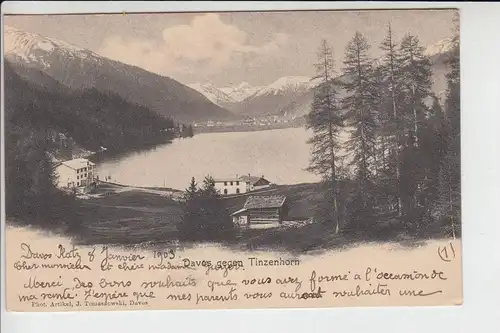 Davos gegen Tinzenhorn
1)
Davos Platz 8 Janvier 1903
Cher monsieur et chère madame
Merci des bons souhaits que vous avez formé à l'occasion de
ma santé. J'espère que mes parents vous auront souhaiter une
Phot. Artikel, J. Tomaszewski, Davos